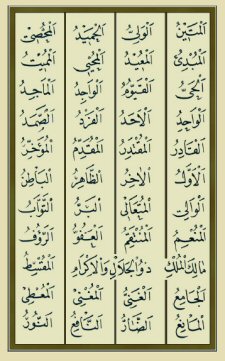 الْمَتِينُ الْوَلِيُّ الْحَمِيدُ الْمُحْصِي
الْمُبْدِئُ الْمُعِيدُ الْمُحْيِي الْمُمِيتُ
الْحَيُّ الْقَيُّومُ الْوَاجِدُ الْمَاجِدُ
الْوَاحِدُ الْأَحَدُ الْفَرْدُ الصَّمَدُ
الْقَادِرُ الْمُقْتَدِرُ الْمُقَدِّمُ الْمُؤَخِّرُ
الْأَوَّلُ الْآخِرُ الظَّاهِرُ الْبَاطِنُ
الْوَالِي الْمُتَعَالِي الْبَرُّ التَّوَّابُ
الْمُنْعِمُ الْمُنْتَقِمُ الْعَفُوُّ الرَّؤُفُ
مَالِكُ الْمُلْكِ ذُو الْجَلَالِ وَالْإِكْرَامِ الْمُقْسِطُ
الْجَامِعُ الْغَنِيُّ الْمُغْنِي الْمُعْطِي
الْمَانِعُ الضَّارُّ النَّافِعُ النُّورُ